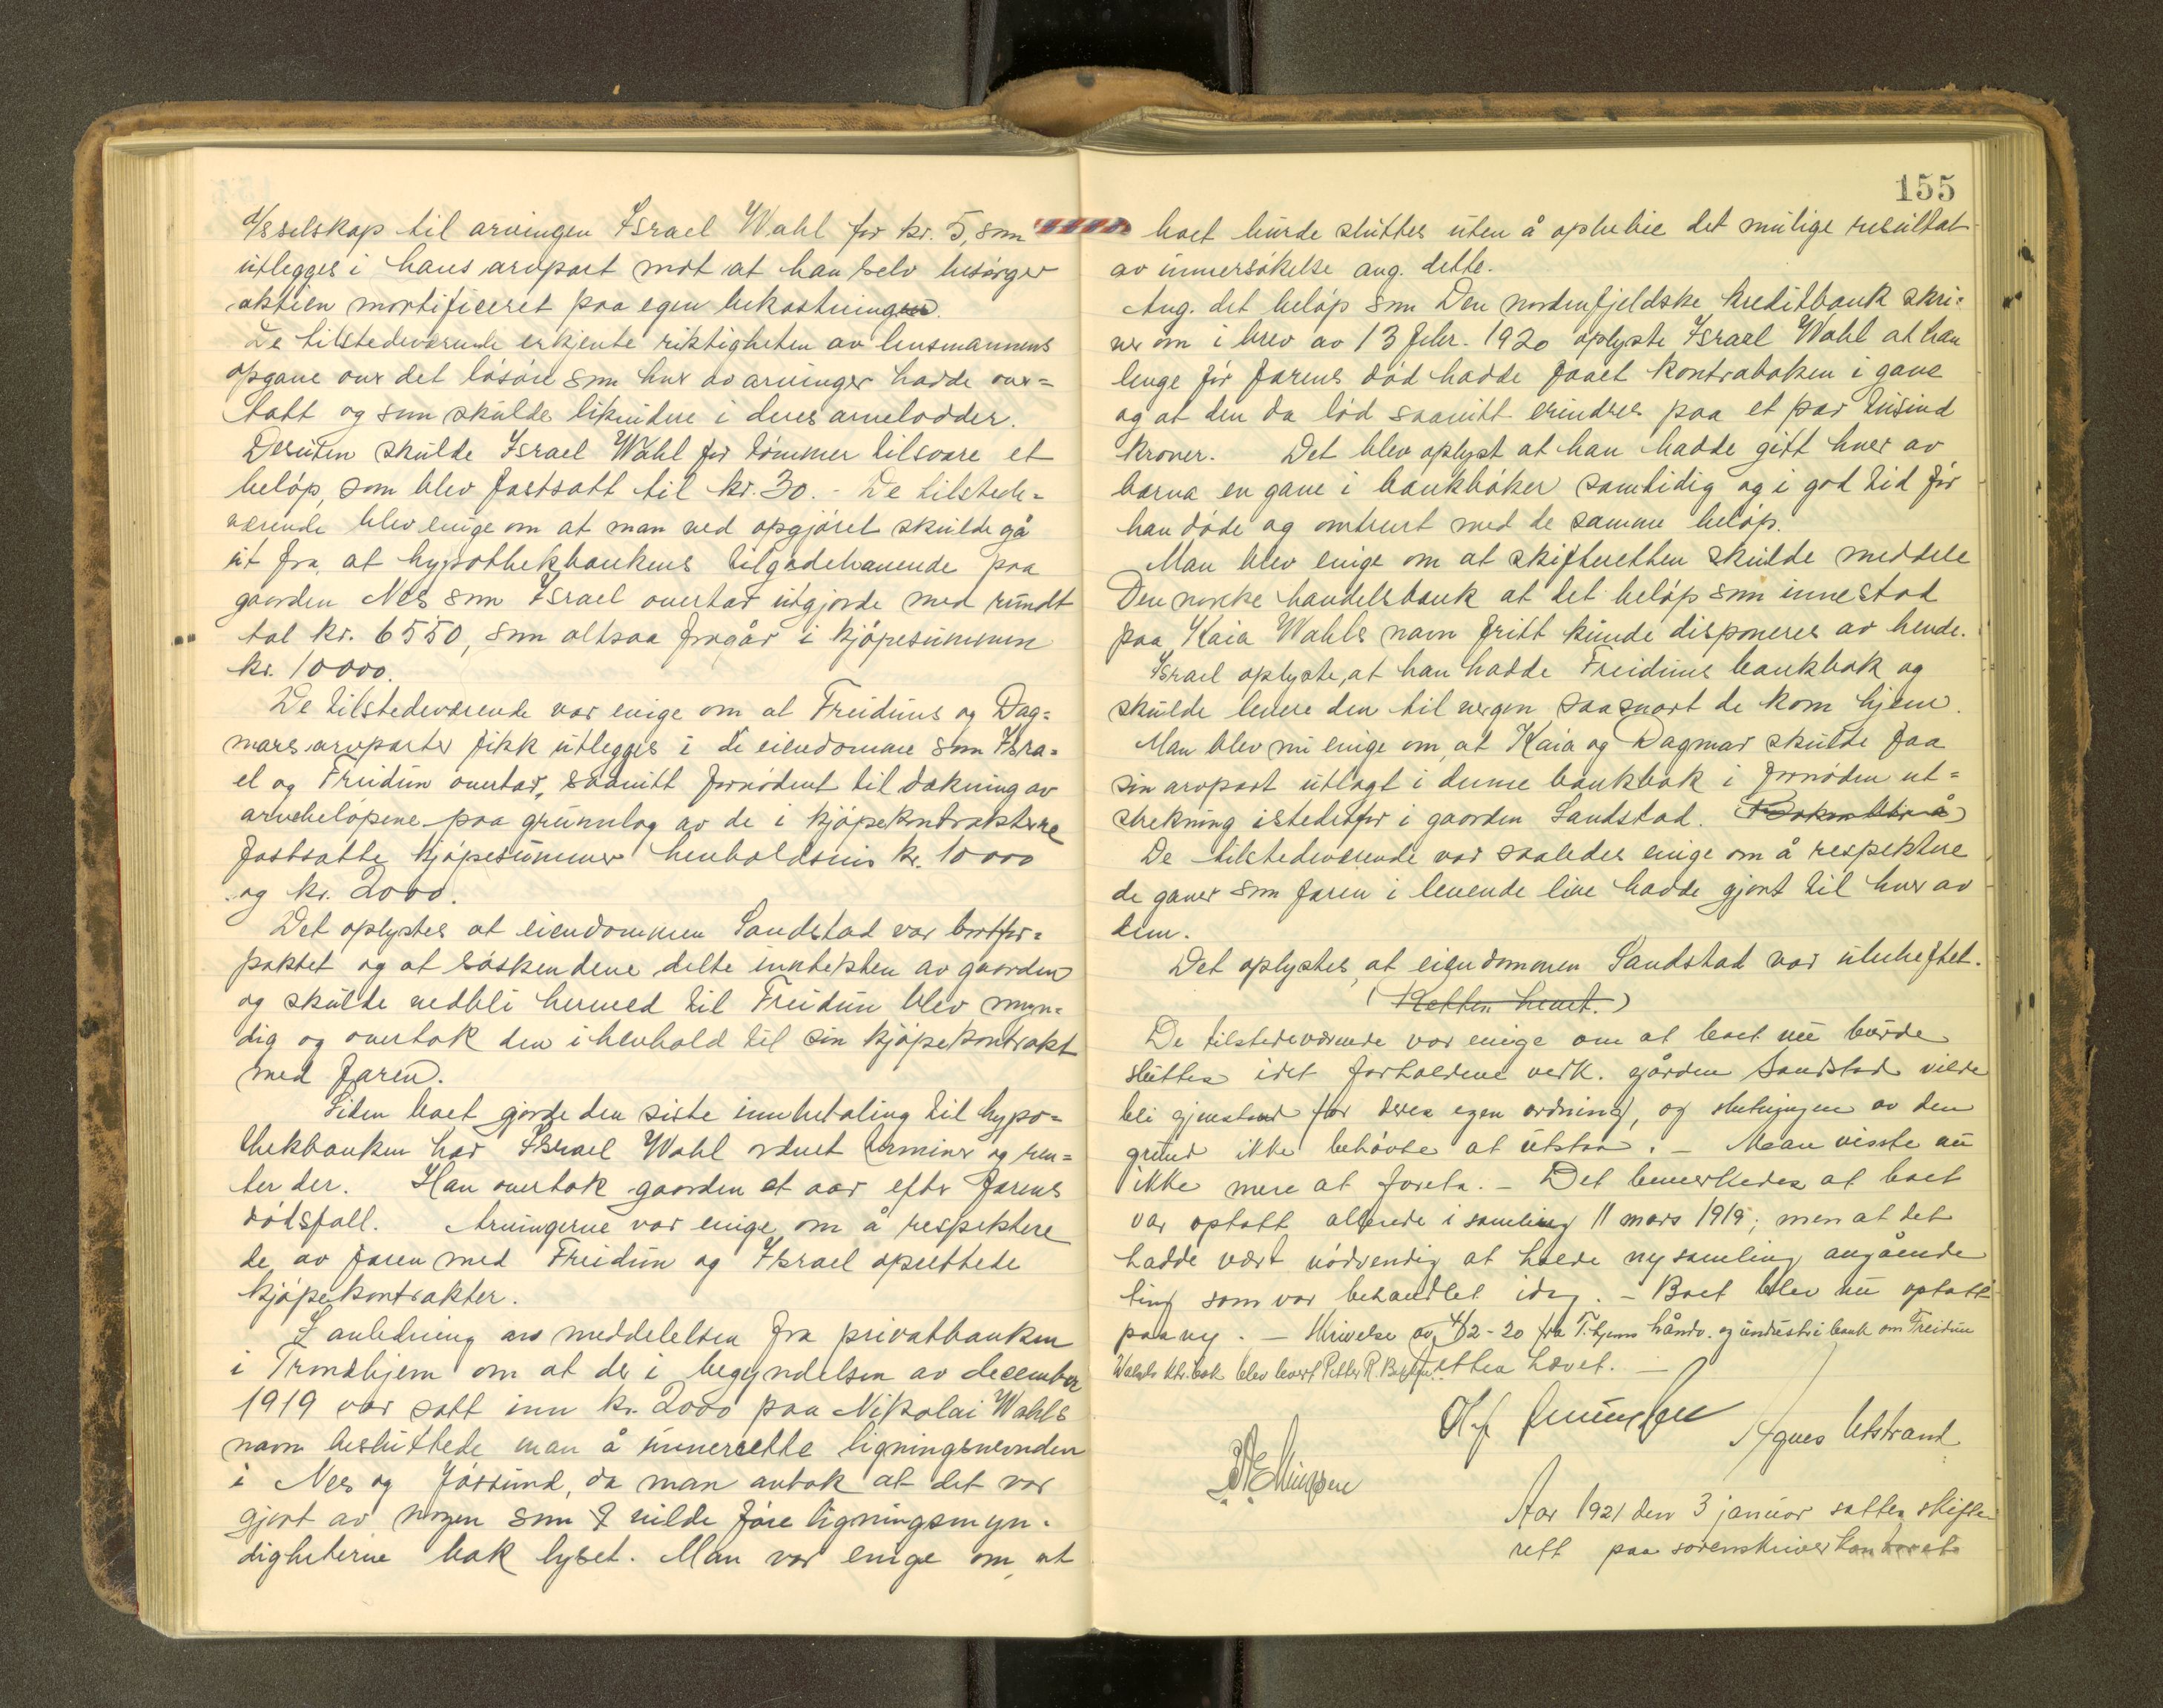 A/sselskap til arvingen Israel Wahl for kr. 5, som
utlegges i hans arvpart mot at han selv besørger
aktien mortificeret paa egen bekostning.
De tilstedeværende erkjente riktigheten av lensmannens
opgave over det løsøre som hver av arvinger hadde over=
tatt og som skulde likvidere i deres arvelodder.
Desuten skulde Israel Wahl for tømmer tilsvare et
beløp, som blev fastsatt til kr. 30. - De tilstede=
værende blev enige om at man ved opgjøret skulde gå
ut fra at hypothekbankens tilgodehavende paa
gaarden Nes som Israel overtar utgjorde med rundt
tal kr. 6550, som altsaa fragår i kjøpesummen
kr. 10000.
De tilstedeværende var enige om at Freiduns og Dag=
mars arvparter fikk utlegges i de eiendomme som Isra=
el og Freidun overtar, saavitt fornødent til dækning av
arvebeløpene paa grunnlag av de i kjøpekontrakterne
fastsatte kjøpesummer henholdsvis kr. 10000
og kr. 2000.
Det oplystes at eiendommen Sandstad var bortfor=
paktet og at søskendene delte inntekten av gaarden
og skulde vedbli hermed til Freidun blev myn=
dig og overtok den i henhold til sin kjøpekontrakt
med faren.
Siden boet gjorde den siste innbetaling til hypo=
thekbanken har Israel Wahl ordnet terminer og ren=
ter der. Han overtok gaarden et aar efter farens
dødsfall. Arvingerne var enige om å respektere
de av faren med Freidun og Israel oprettede
kjøpekontrakter.
I anledning av meddelelsen fra privatbanken
i Trondhjem om at der i begyndelsen av december
1919 var satt inn kr. 2000 paa Nikolai Wahls
navn besluttede man å unnerrette ligningsnevnden
i Nes og Jøssund, da man antok at det var
gjort av nogen som vilde føre ligningsmyn=
digheterne bak lyset. Man var enige om, at
155
boet burde sluttes uten å opbebie det mulige resultat
av unnersøkelse ang. dette.
Ang. det beløp som Den nordenfjeldske kreditbank skri=
ver om i brev av 13 febr. 1920 oplyste Israel Wahl at han
lenge før farens død hadde faaet kontraboken i gave
og at den da lød saavitt erindres paa et par tusind
kroner. Det blev oplyst at han hadde gitt hver av
barna en gave i bankbøker samtidig og i god tid før
han døde og omtrent med de samme beløp.
Man blev enige om at skifteretten skulde meddele
Den norske handelsbank at det beløp som innestod
paa Kaia Wahls navn fritt kunde disponeres av hende.
Israel oplyste, at han hadde Freiduns bankbok og
skulde levere den til vergen saasnart de kom hjem.
Man blev nu enige om, at Kaia og Dagmar skulde faa
sin arvpart utlagt i denne bankbok i fornøden ut=
strekning istedetfor i gaarden Sandstad.
De tilstedeværende var saaledes enige om å respektere
de gaver som faren i levende live hadde gjort til hver av
dem.
Det oplystes, at eiendommen Sandstad var ubeheftet.
(Retten hevet.)
De tilstedeværende var enige om at boet nu burde
sluttes idet forholdene vedk. gården Sandstad vilde
bli gjenstand for deres egen ordning, og slutningen av den
grund ikke behøvte at utstaa. - Man visste nu
ikke mere at foreta. - Det bemerkedes at boet
var optatt allerede i samling 11 mars 1919; men at det
hadde vært nødvendig at holde ny samling angående
ting som var behandlet idag. - Boet blev nu optatt
paa ny. - Skrivelse av 4/12-20 fra T.hjems håndv. og industribank om Freidun
Wahls ktr.bok blev levert Petter R. Retten hævet. -
Agnes Utstrand
Aar 1921 den 3 januar sattes skifte-
rett paa sorenskriverkontoret